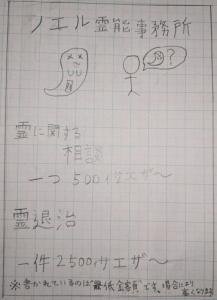 ノエル霊能事務所
?
霊に関する
相談
一つ 500サエザ〜
霊退治
一件 2500サエザ〜
※書かれているのは"最低金額"です。場合により
高くなります